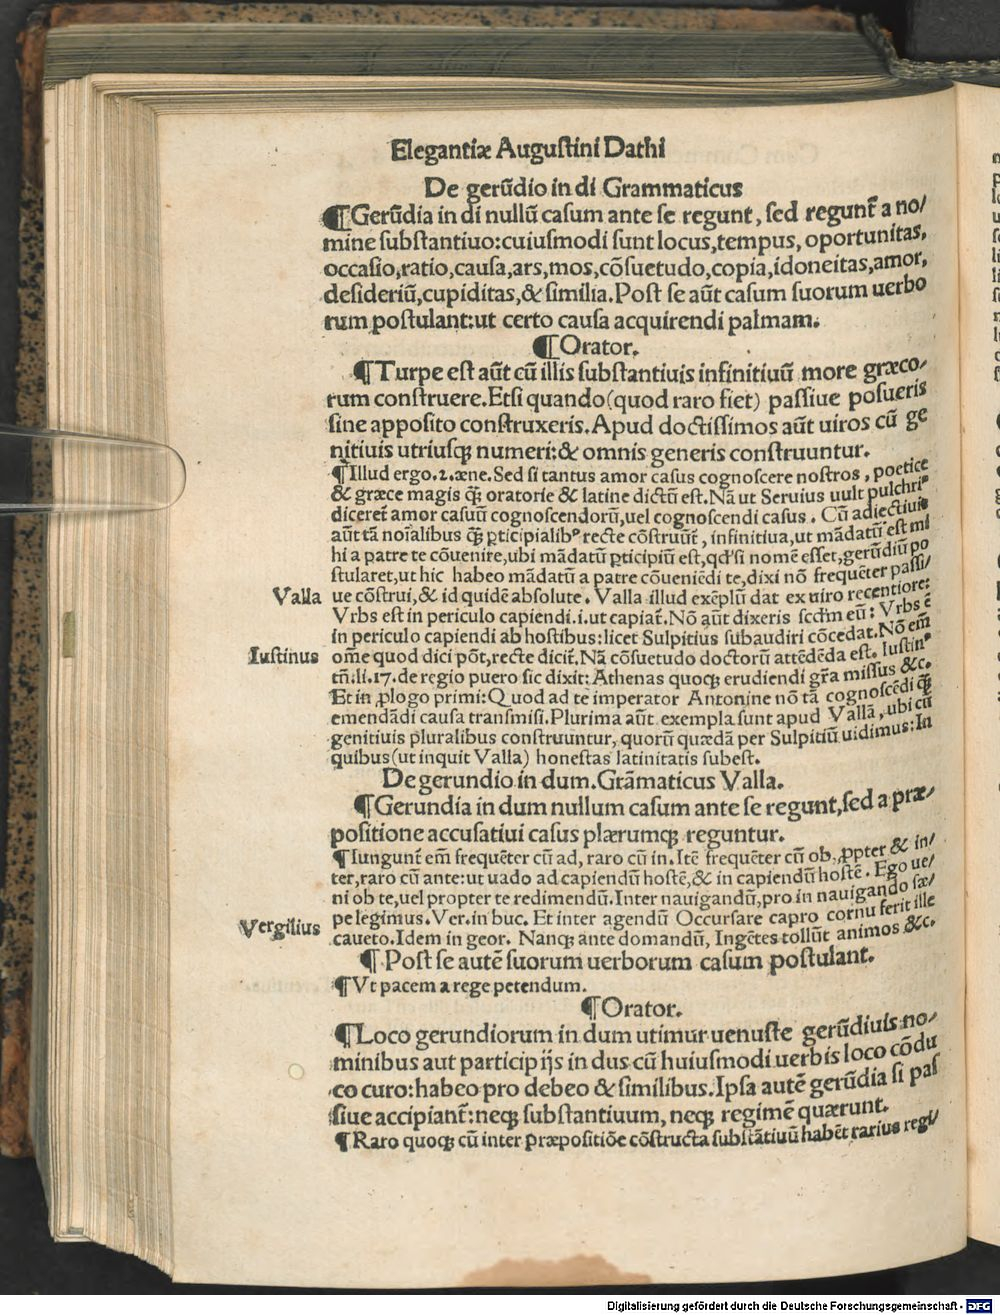 Elegantiæ Auguſtini Dathi
De gerũdio in di Grammaticus
¶Gerũdia in di nullũ caſum ante ſe regunt, ſed regunt̃ a no/
mine ſubſtantiuo:cuiuſmodi ſunt locus,tempus, oportunitas,
occaſio,ratio,cauſa,ars,mos,cõſuetudo,copia,idoneitas,amor,
deſideriũ,cupiditas,& ſimilia.Poſt ſe aũt caſum ſuorum uerbo
rum poſtulant:ut certo cauſa acquirendi palmam.
¶Orator.
¶Turpe eſt aũt cũ illis ſubſtantiuis infinitiuũ more græco/
rum conſtruere.Etſi quando(quod raro fiet) paſſiue poſueris
ſine appoſito conſtruxeris.Apud doctiſſimos aũt uiros cũ ge
nitiuis utriuſqꝫ numeri:& omnis generis conſtruuntur.
¶Illud ergo.2.æne.Sed ſi tantus amor caſus cognoſcere noſtros, poetice
& græce magis q̃ꝫ oratorie & latine dictũ eſt.Nã ut Seruius uult pulchriꝰ
diceret̃ amor caſuũ cognoſcendorũ,uel cognoſcendi caſus. Cũ adiectiuis
aũt tã noĩalibus q̃ꝫ ꝑticipialibꝰ recte cõſtruũt̃, infinitiua,ut mãdatũ eſt mi
hi a patre te cõuenire,ubi mãdatũ ꝑticipiũ eſt,qd̕ſi nomẽ eſſet,gerũdiũ po
ſtularet,ut hic habeo mãdatũ a patre cõueniẽdi te,dixi nõ frequẽter paſſi/
Valla ue cõſtrui,& id quidẽ abſolute. Valla illud exẽplũ dat ex uiro recentiore:
Vrbs eſt in periculo capiendi.i.ut capiat̃.Nõ aũt dixeris ſcd̃m eũ: Vrbs ẽ
in periculo capiendi ab hoſtibus:licet Sulpitius ſubaudiri cõcedat.Nõ em̃
Iuſtinus om̃e quod dici põt,recte dicit̃.Nã cõſuetudo doctorũ attẽdẽda eſt. Iuſtinꝰ
tñ.li.17.de regio puero ſic dixit: Athenas quoqꝫ erudiendi gr̃a miſſus &c.
Et in ꝓlogo primi:Quod ad te imperator Antonine nõ tã cognoſcẽdi q̃ꝫ
emendãdi cauſa tranſmiſi.Plurima aũt exempla ſunt apud Vallã, ubi cũ
genitiuis pluralibus conſtruuntur, quorũ quædã per Sulpitiũ uidimus:In
quibus(ut inquit Valla) honeſtas latinitatis ſubeſt.
De gerundio in dum.Grãmaticus Valla.
¶Gerundia in dum nullum caſum ante ſe regunt,ſed a præ/
poſitione accuſatiui caſus plærumqꝫ reguntur.
¶Iungunt̃ em̃ frequẽter cũ ad, raro cũ in.Itẽ frequẽter cũ ob, ꝓpter & in/
ter,raro cũ ante:ut uado ad capiendũ hoſtẽ,& in capiendũ hoſtẽ. Ego ue/
ni ob te,uel propter te redimendũ.Inter nauigandũ,pro in nauigando ſæ/
Vergilius pe legimus.Ver.in buc. Et inter agendũ Occurſare capro cornu ferit ille
caueto.Idem in geor. Nanqꝫ ante domandũ, Ingẽtes tollũt animos &c.
¶ Poſt ſe autẽ ſuorum uerborum caſum poſtulant.
¶Vt pacem a rege petendum.
¶Orator.
¶Loco gerundiorum in dum utimur uenuſte gerũdiuis no/
minibus aut participijs in dus cũ huiuſmodi uerbis loco cõdu
co curo:habeo pro debeo & ſimilibus.Ipſa autẽ gerũdia ſi paſ
ſiue accipiant̃:neqꝫ ſubſtantiuum, neqꝫ regimẽ quærunt.
¶Raro quoqꝫ cũ inter præpoſitiõe cõſtructa ſubſtãtiuũ habẽt rarius regi/
Digitalisierung gefördert durch die Deutsche Forschungsgemeinschaft - DFG